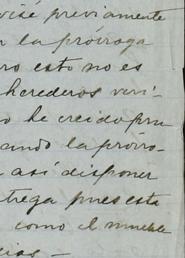 visé previamente
la próroga
ro esto no es
herederos veri-
o he creido pru
ando la próro-
así disponer
trega pues esta
como el mueble
cias -